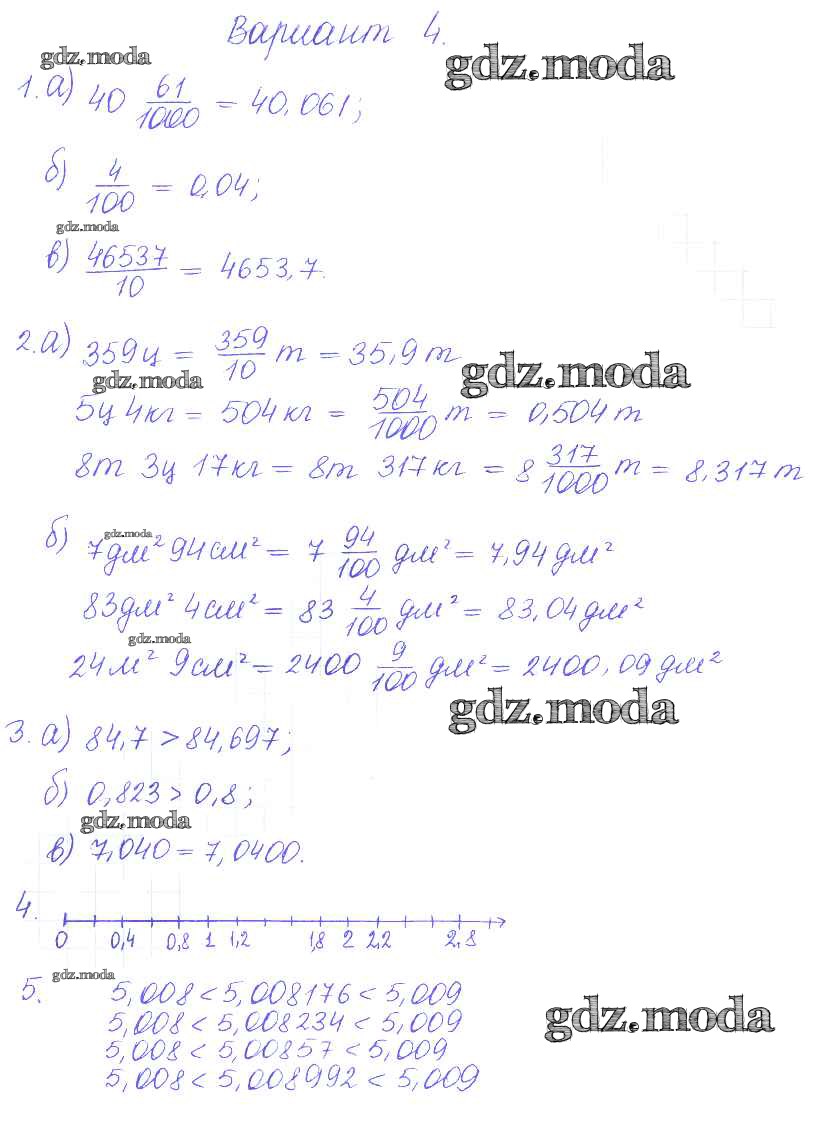 Вариант 4.
gdz.moda
gdz.moda
1. а) 40 61/1000 = 40,061;
б) 4/100 = 0,04;
gdz.moda
в) 46537/10 = 4653,7.
2. а) 359 ц = 359/10 т = 35,9 т
gdz.moda
gdz.moda
5ц 4кг = 504 кг = 504/1000 т = 0,504 т
8т 3ц 17кг = 8т 317 кг = 8 317/1000 т = 8,317 т
gdz.moda
б) 7дм² 94см² = 7 94/100 дм² = 7,94 дм²
83дм² 4см² = 83 4/100 дм² = 83,04 дм²
gdz.moda
24м² 9см² = 2400 9/100 дм² = 2400,09 дм²
gdz.moda
3. а) 84,7 > 84,697;
б) 0,823 > 0,8;
gdz.moda
в) 7,040 = 7,0400.
4.
0 0,4 0,8 1 1,2 1,8 2 2,2 2,8
gdz.moda
5. 5,008 < 5,008176 < 5,009
5,008 < 5,008234 < 5,009
gdz.moda
5,008 < 5,00857 < 5,009
5,008 < 5,008992 < 5,009